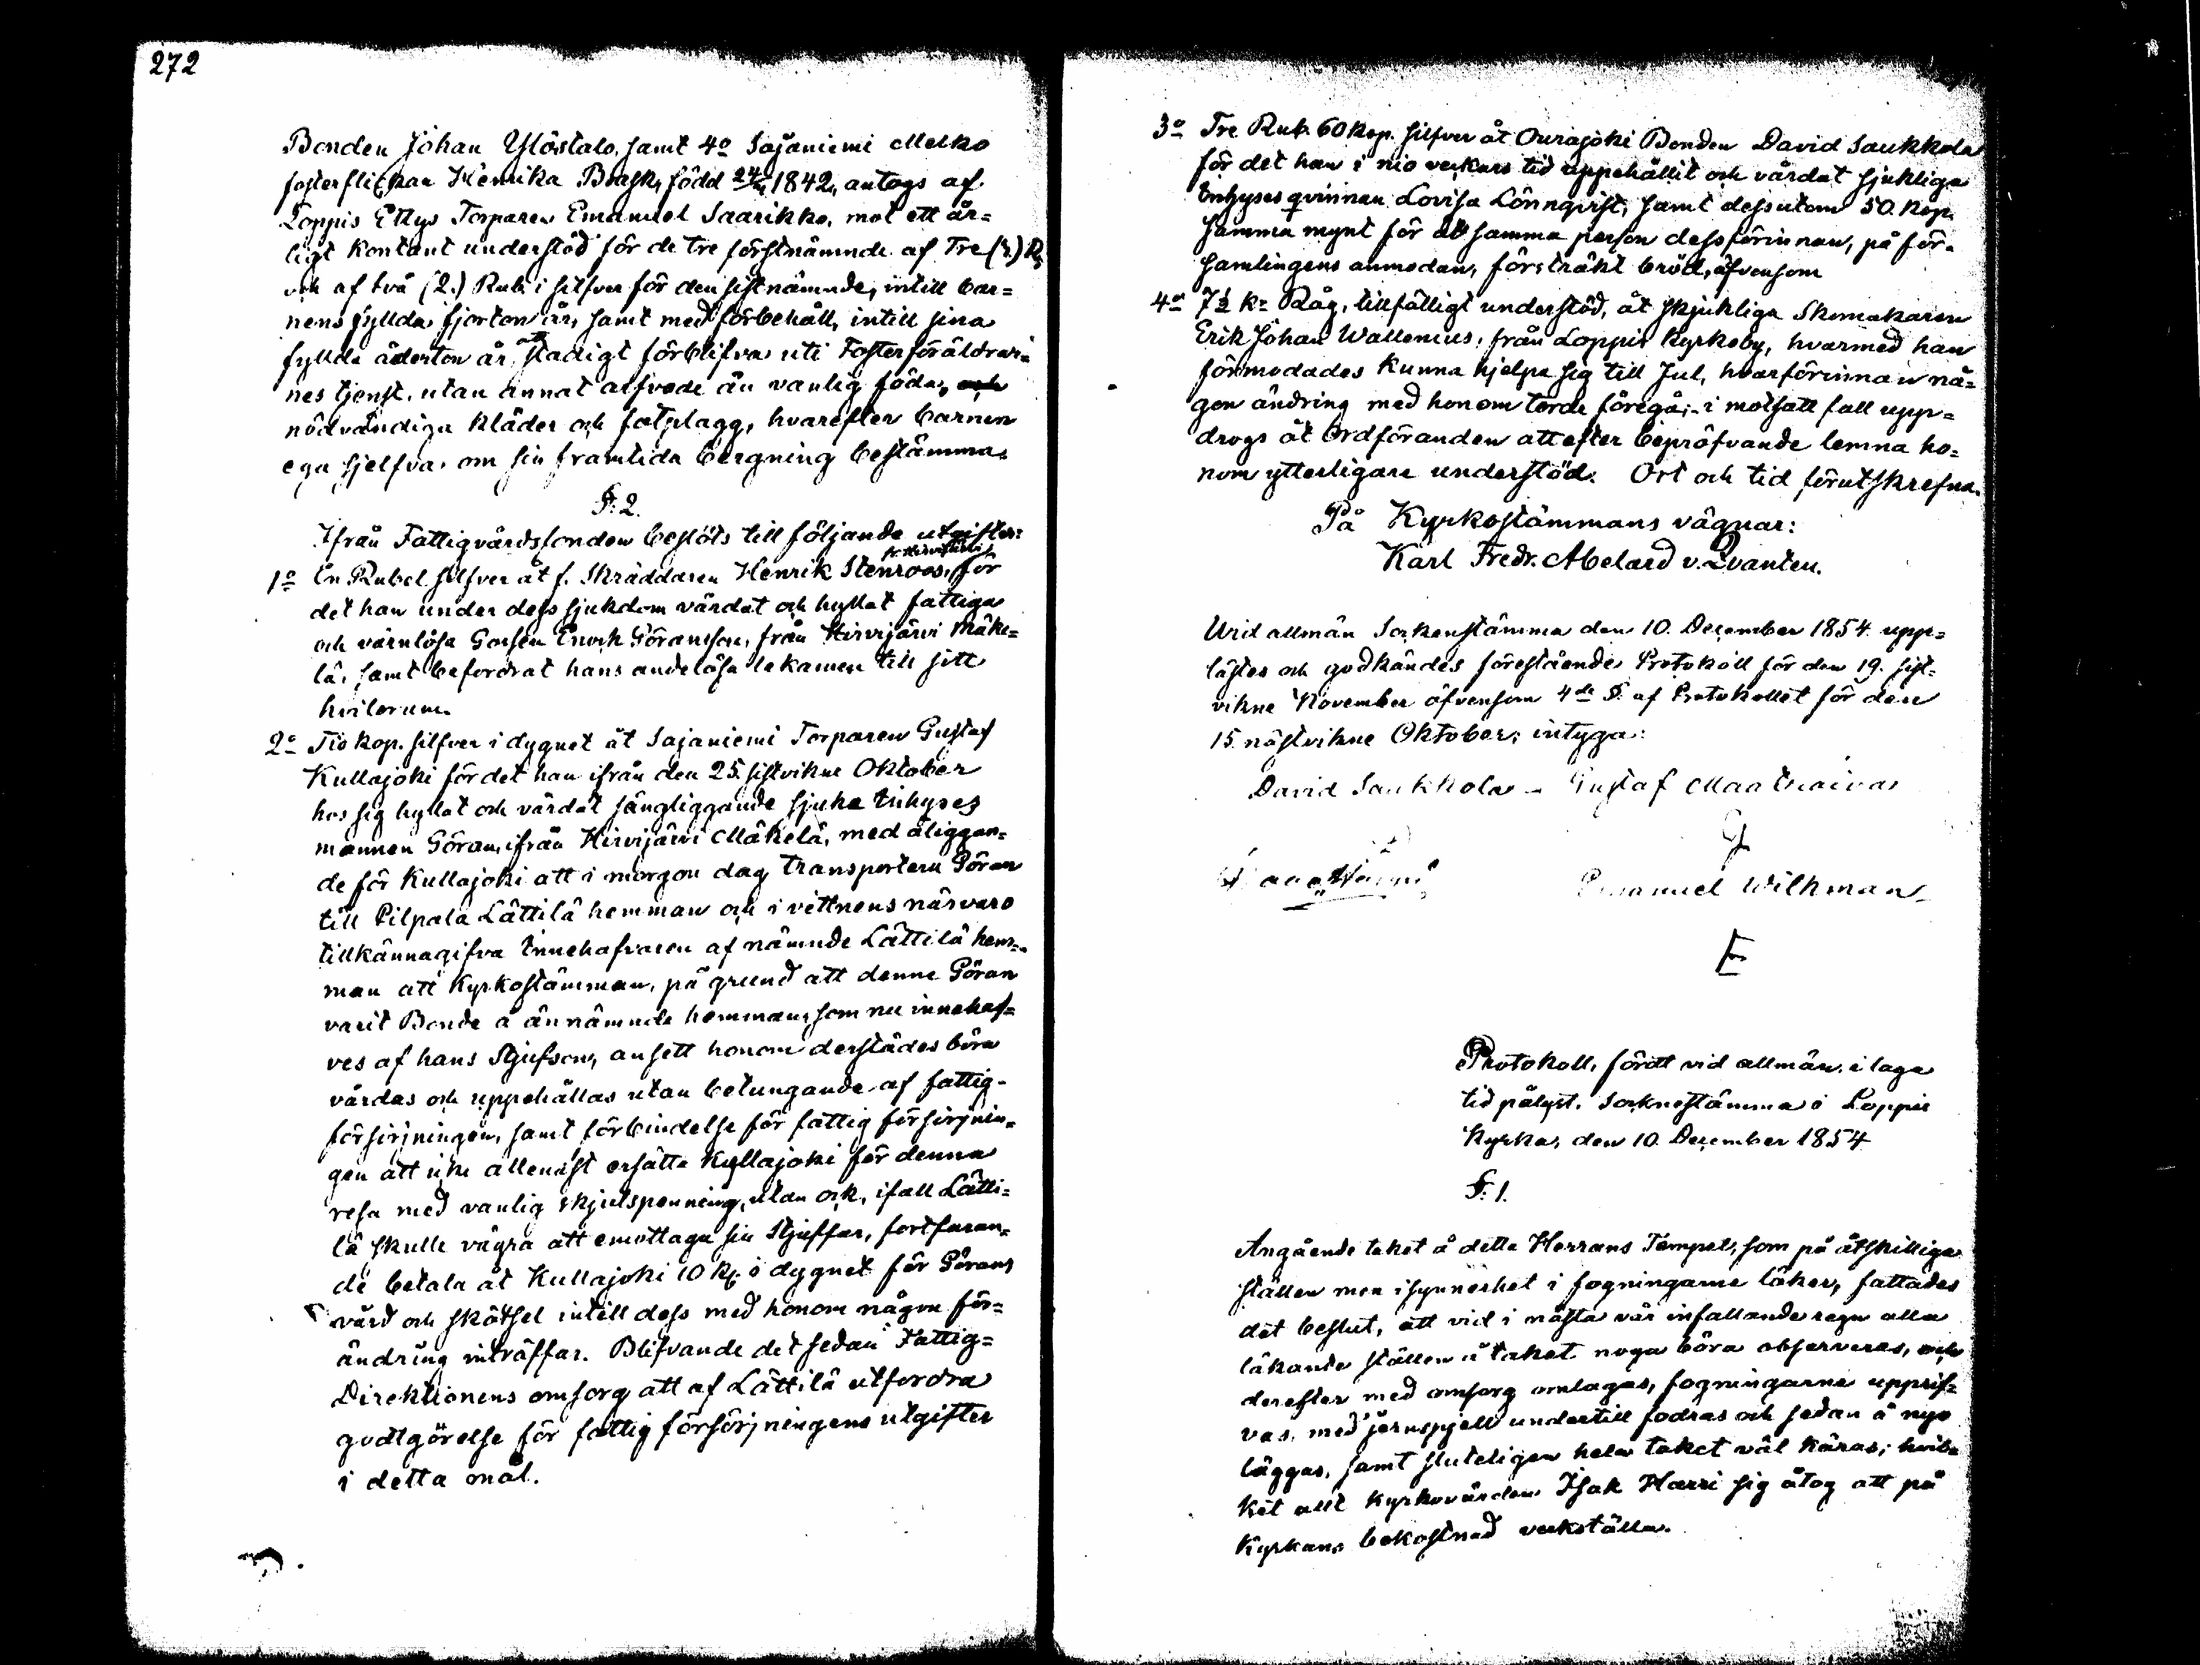 272
Bonden Johan Ylöstalo, samt 4o Sajaniemi Melko
fosterflickan Henrika Brask, född 24/4 1842, antogs af
Loppis Ettys Torparen Emanuel Saarikko, mot ett år=
ligt kontant understöd för de tre förstnämnde af Tre (3.) R.
och af två (2.) Rub. i silfver för den sistnämnde, intill bar=
nens fyllda fjorton år, samt med förbehåll, intill sina
fyllda äderton år, att stadigt förblifva uti Fosterföräldrar=
nes tjenst, utan annat arfvode än vanlig föda, och
nödvändiga kläder och fotplagg, hvarefter barnen
ega sjelfva om sin framtida bergning bestämma.
§. 2.
Ifrån Fattigvårdsfonden bestöts till följande utgifter:
fr. Hirvijärvi
1o En Rubel silfver åt f. Skräddaren Henrik Stenroos, för
det han under dess sjukdom vårdat och hyllat fattiga
och värnlösa Gossen Enoch Göransson, från Hirvijärvi Mäke=
lä, samt befordrat hans andelösa lekamen till sitt
hvilorum.
2o Tio kop. silfver i dygnet åt Sajaniemi Torparen Gustaf
Kullajoki för det han ifrån den 25. sistvikne Oktober
hos sig hyllat och vårdat sängliggande sjuke Inhyses
mannen Göran, ifrån Hirvijärvi Mäkelä, med åliggan=
de för Kullajoki att i morgon dag transportera Göran
till Pilpala Lättilä hemman och i vittnens närvaro
tillkännagifva Innehafvaren af nämnde Lättilä hem=
man att Kyrkostämman, på grund att denne Göran
varit Bonde å ännämnde hemman, som nu innehaf=
ves af hans Stjufson, ansett honom derstädes böra
vårdas och uppehållas utan betungande af fattig-
försörjningen, samt förbindelse för fattig försörjnin=
gen att icke allenast ersätta Kullajoki för denna
resa med vanlig skjutspenning, utan ock, ifall Lätti=
lä skulle vägra att emottaga sin Stjuffar, fortfaran=
de betala åt Kullajoki 10 K. i dygnet för Görans
vård och skötsel intill dess med honom någon för=
ändring inträffar. Blifvande det sedan Fattig=
Direktionens omsorg att af Lättilä utfordra
godtgörelse för fattig försörjningens utgifter
i detta mål.
3o Tre Rub. 60 kop. silfver åt Ourajoki Bonden David Saukkola
för det han i nio veckors tid uppehållit och vårdat sjukliga
Inhyses qvinnan Lovisa Lönnqvist, samt dessutom 50. Kop.
samma mynt för åt samma person dessförinnan, på för=
samlingens anmodan, försträkt bröd, äfvensom
4o 7½ k:r Råg, tillfälligt understöd, åt skjukliga Skomakaren
Erik Johan Wallenius, från Loppis Kyrkoby, hvarmed han
förmodades kunna hjelpa sig till Jul, hvarförinnan nå=
gon ändring med honom torde föregå; i motsatt fall upp=
drogs åt Ordföranden att efter bepröfvande lemna ho=
nom ytterligare understöd. Ort och tid förutskrefna.
På Kyrkostämmans vägnar:
Karl Fredr. Abelard v. Qvanten.
Wid allmän Sockenstämma den 10. December 1854. upp=
lästes och godkändes förestående Protokoll för den 19. sist=
vikne November äfvensom 4de §. af Protokollet för den
15. nästvikne Oktober; intyga:
David Saukkola Gustaf
Emanuel Wilkman
Protokoll, fördt vid allmän, i laga
tid pålyst, Socknestämma i Loppis
Kyrka, den 10. December 1854
§. 1.
Angående taket å detta Herrans Tempel, som på åtskilliga
ställen men isynnerhet i fogningarne läker, fattades
det beslut, att vid i nästa vår infallande regn alla
läkande ställen å taket noga böra observeras, och
derefter med omsorg omlagas, fogningarne upprif=
vas, med jernspjell undertill fodras och sedan å nyo
läggas, samt sluteligen hela taket väl käras; hvil=
ket allt Kyrkovärden Isak Harri sig åtog att på
Kyrkans bekostnad verkställa.